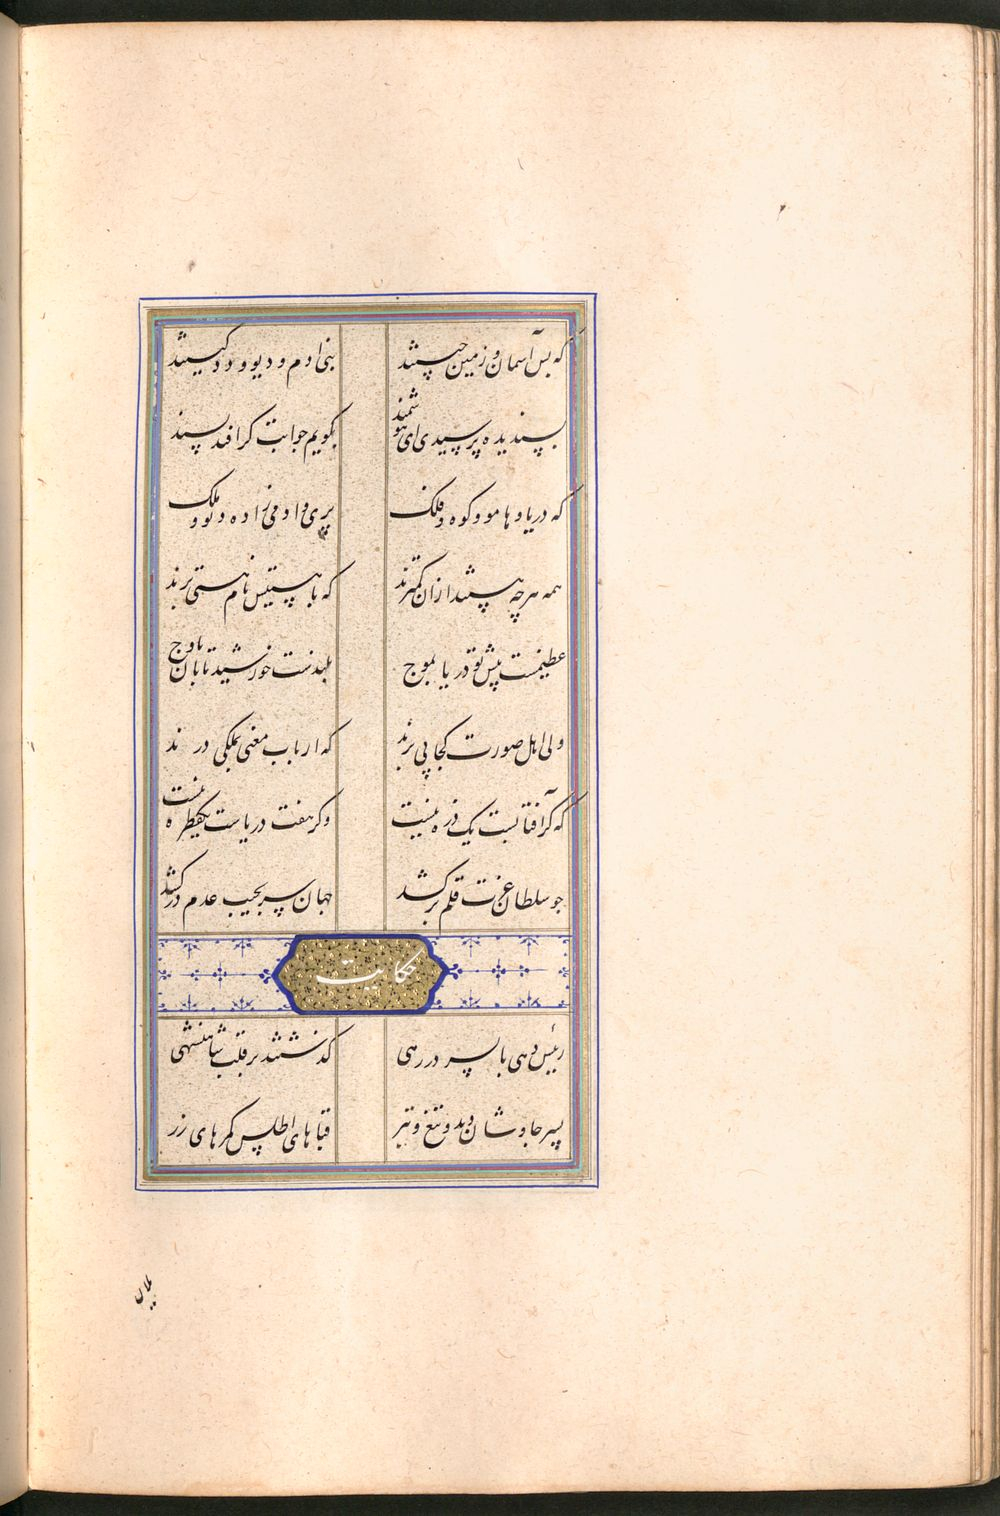 که پس آسمان و زمین چیستند
بنی ادم و دیو و دد کیستند
پسندیده پرسیدی ای هوشمند
بگویم جوابت کر افتد پسند
که دریا و هامو و کوه و فلک
پری و ادمی زاده و دیو و ملک
همه هرچه هستند ازان کمترند
که با هستیش نام هستی برند
عظیمست پیش تو دریا بموج
بلندست خورشید تابان باوج
ولی اهل صورت کجا پی برند
که ارباب معنی بملکی درند
که کر آفتابست یک ذره نیست
وکر هفت دریاست یکقطره نیست
جو سلطان عزت قلم برکشد
جهان سر بجیب عدم درکشد
حکایت
رئیس دهی با پسر در رهی
کذشتند بر قلب شاهنشهی
پسر جاوشان دید و تیغ و تبر
قباهای اطلس کمرهای زر
یلان